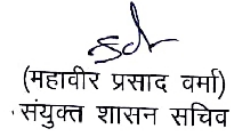 (महावीर प्रसाद वर्मा)
संयुक्त शासन सचिव